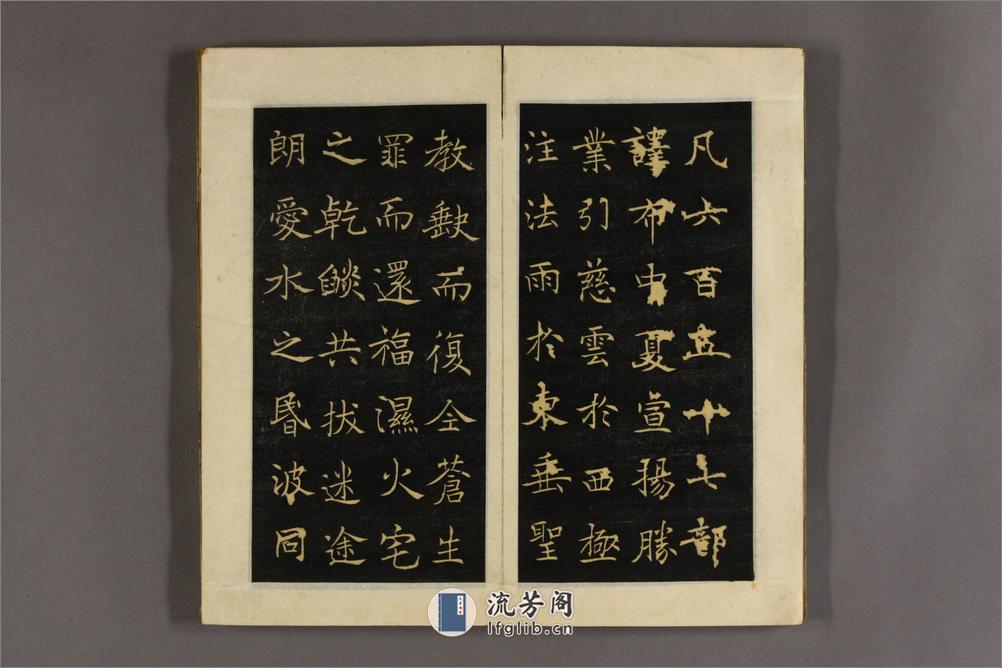 凡六百五十七部
譯布中夏宣揚勝
業引慈雲於西極
注法雨於東垂聖
教缺而復仝蒼生
罪而還福濕火宅
之乾燄共拔迷途
朗愛水之昬波同
流芳阁
lfglib.cn